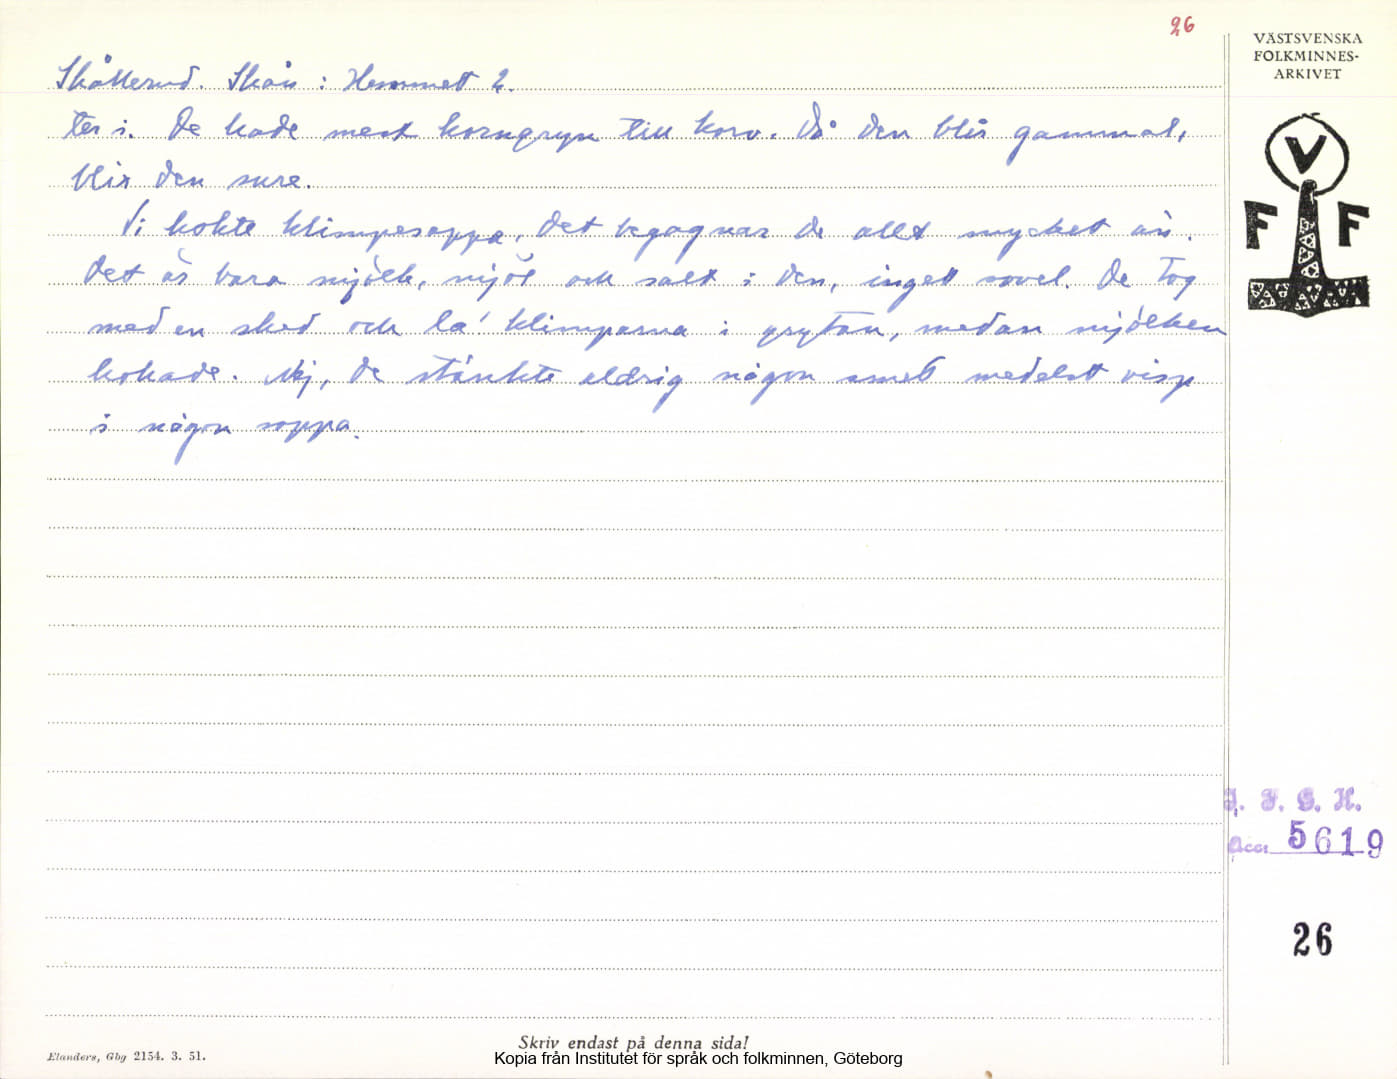 26
VÄSTSVENSKA
FOLKMINNES-
ARKIVET
Skållerud. Skån: Hemmet 2.
ter i. De hade mest korngryn till korv. Då den blir gammal,
blir den sure.
Vi kokte klimpesoppa, det begagnar de allt mycket än.
Det är bara mjölk, mjöl och salt i den, inget sovel. De tog
med en sked och la' klimparna i grytan, medan mjölken
kokade. Nej, de stänkte aldrig någon smet medelst visp
i någon soppa.
V
F F
I. F. G. H.
Acc: 5619
26
Skriv endast på denna sida!
Elanders, Gbg 2154. 3. 51.
Kopia från Institutet för språk och folkminnen, Göteborg